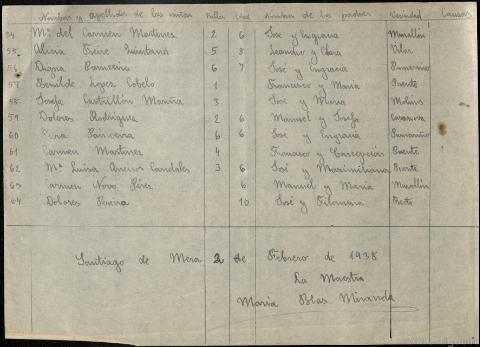 Nombres y apellidos de las niñas Faltas Edad Nombres de los padres Vecindad Causas
54 Mª del Carmen Martínez 2 6 José y Engracia Murallón
55 Alicia Freire Quintana 5 8 Leandro y Clara Vilar
56 Digna 6 7 José y Engracia Pumariño
57 Benilde López Cobelo 1 Francisco y María Puente
58 Josefa Castrillón Mariña 3 José y María Molinos
59 Dolores Rodríguez 2 6 Manuel y Josefa Casanova
60 6 6 José y Engracia Pumariño
61 Carmen Martínez 4 Francisco y Concepción Puente
62 Mª Luisa Aneiros Candales 3 6 José y Maximiliana Puente
63 Carmen Novo Pérez 6 Manuel y María Murallón
64 Dolores Pereira 10 José y Filomena
Santiago de Mera 2 de Febrero de 1938
La Maestra
María Blas Miranda